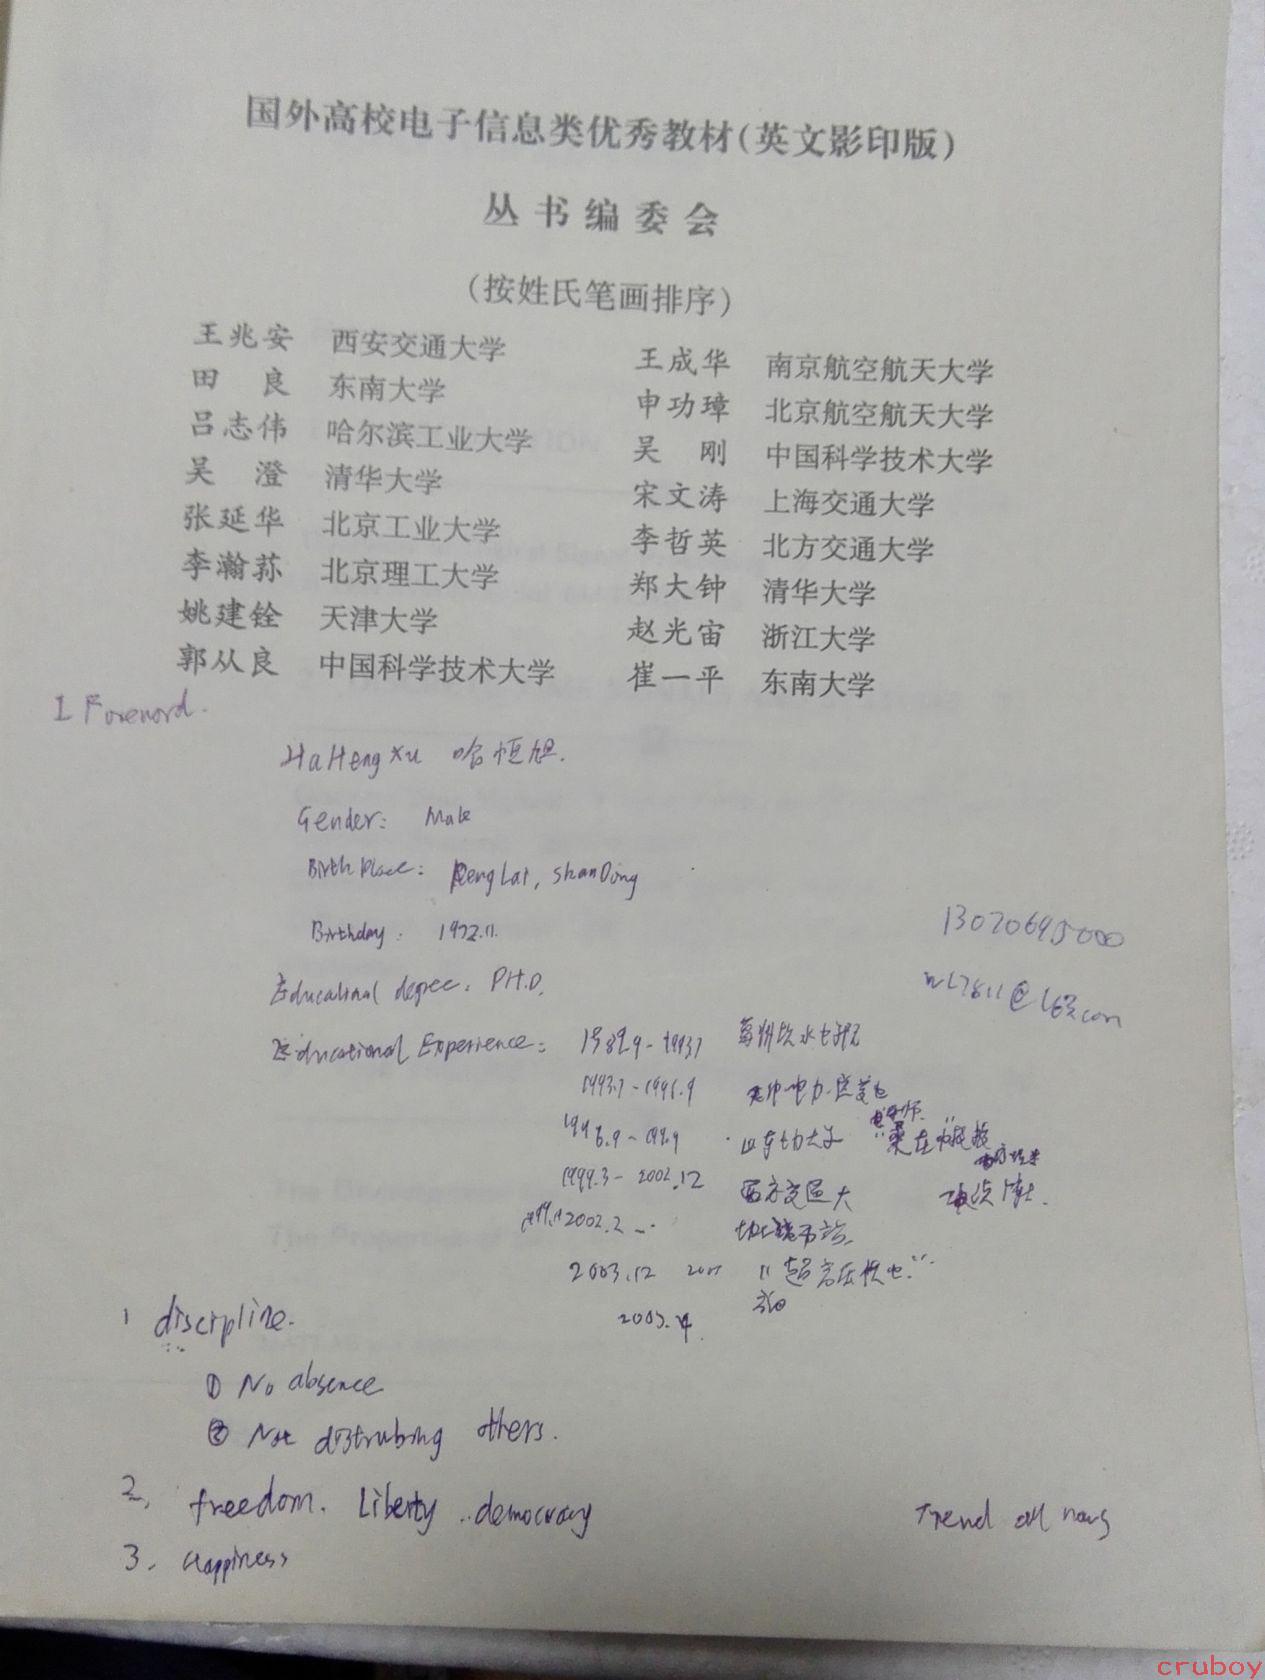 国外高校电子信息类优秀教材(英文影印版)
丛书编委会
(按姓氏笔画排序)
王兆安 西安交通大学 王成华 南京航空航天大学
田 良 东南大学 申功璋 北京航空航天大学
吕志伟 哈尔滨工业大学 吴 刚 中国科学技术大学
吴 澄 清华大学 宋文涛 上海交通大学
张延华 北京工业大学 李哲英 北方交通大学
李瀚荪 北京理工大学 郑大钟 清华大学
姚建铨 天津大学 赵光宙 浙江大学
郭从良 中国科学技术大学 崔一平 东南大学
I Foreword.
HaHengXu 哈恒旭.
Gender: Male
Birth Place: PengLai, ShanDong
Birthday: 1972.11.
13070695000
Educational degree: PH.D.
Educational Experience: 1989.9-1993.7
1993.7-1996.9
1999.3-2002.12 西安交通大
2002.2
2003.12
2003.4.
1 discipline.
① No absence
② Not distrubing others.
2. freedom. Liberty. democracy
3. Happiness
Trend
cruboy